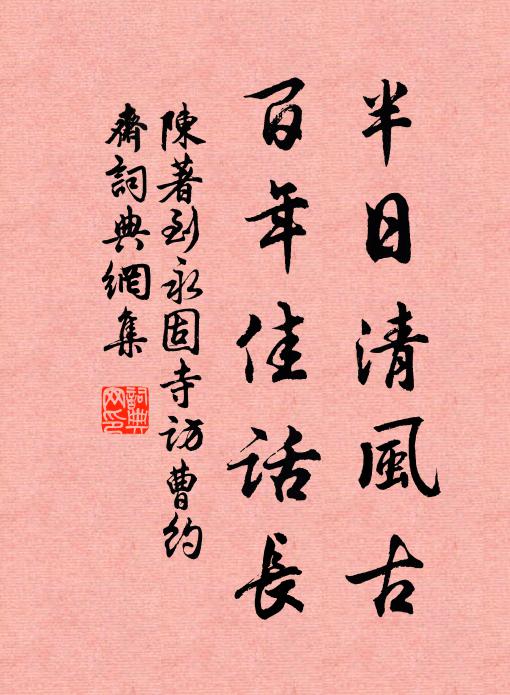 半日清風古
百年佳話長
陳著到永固寺訪曹約
齋詞典網集
詞典
网印